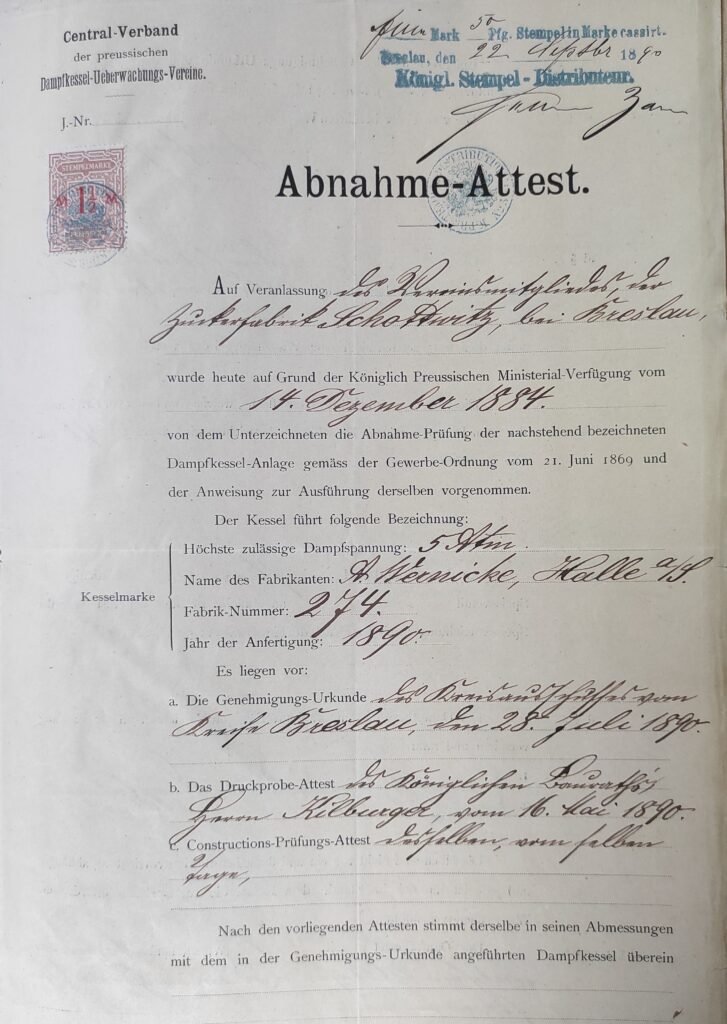 Central-Verband
der preussischen
Dampfkessel-Ueberwachungs-Vereine.
J.-Nr.
Eine Mark 50 Pfg. Stempel in Marke cassirt.
Breslau, den 22 Septbr 1890
Königl. Stempel-Distributeur.
STEMPELMARKE
M 1½ M
Abnahme-Attest.
Auf Veranlassung des Vereinsmitgliedes, der
Zuckerfabrik Schottwitz, bei Breslau,
wurde heute auf Grund der Königlich Preussischen Ministerial-Verfügung vom
14. Dezember 1884.
von dem Unterzeichneten die Abnahme-Prüfung der nachstehend bezeichneten
Dampfkessel-Anlage gemäss der Gewerbe-Ordnung vom 21. Juni 1869 und
der Anweisung zur Ausführung derselben vorgenommen.
Der Kessel führt folgende Bezeichnung:
Kesselmarke
Höchste zulässige Dampfspannung: 5 Atm.
Name des Fabrikanten: A Wernicke, Halle a/S.
Fabrik-Nummer: 274.
Jahr der Anfertigung: 1890.
Es liegen vor:
a. Die Genehmigungs-Urkunde des Kreisausschusses vom
Kreise Breslau, den 28. Juli 1890.
b. Das Druckprobe-Attest des Königlichen Bauraths
Herrn Kilburger, vom 16. Mai 1890.
c. Constructions-Prüfungs-Attest desselben, vom selben
Tage,
Nach den vorliegenden Attesten stimmt derselbe in seinen Abmessungen
mit dem in der Genehmigungs-Urkunde angeführten Dampfkessel überein